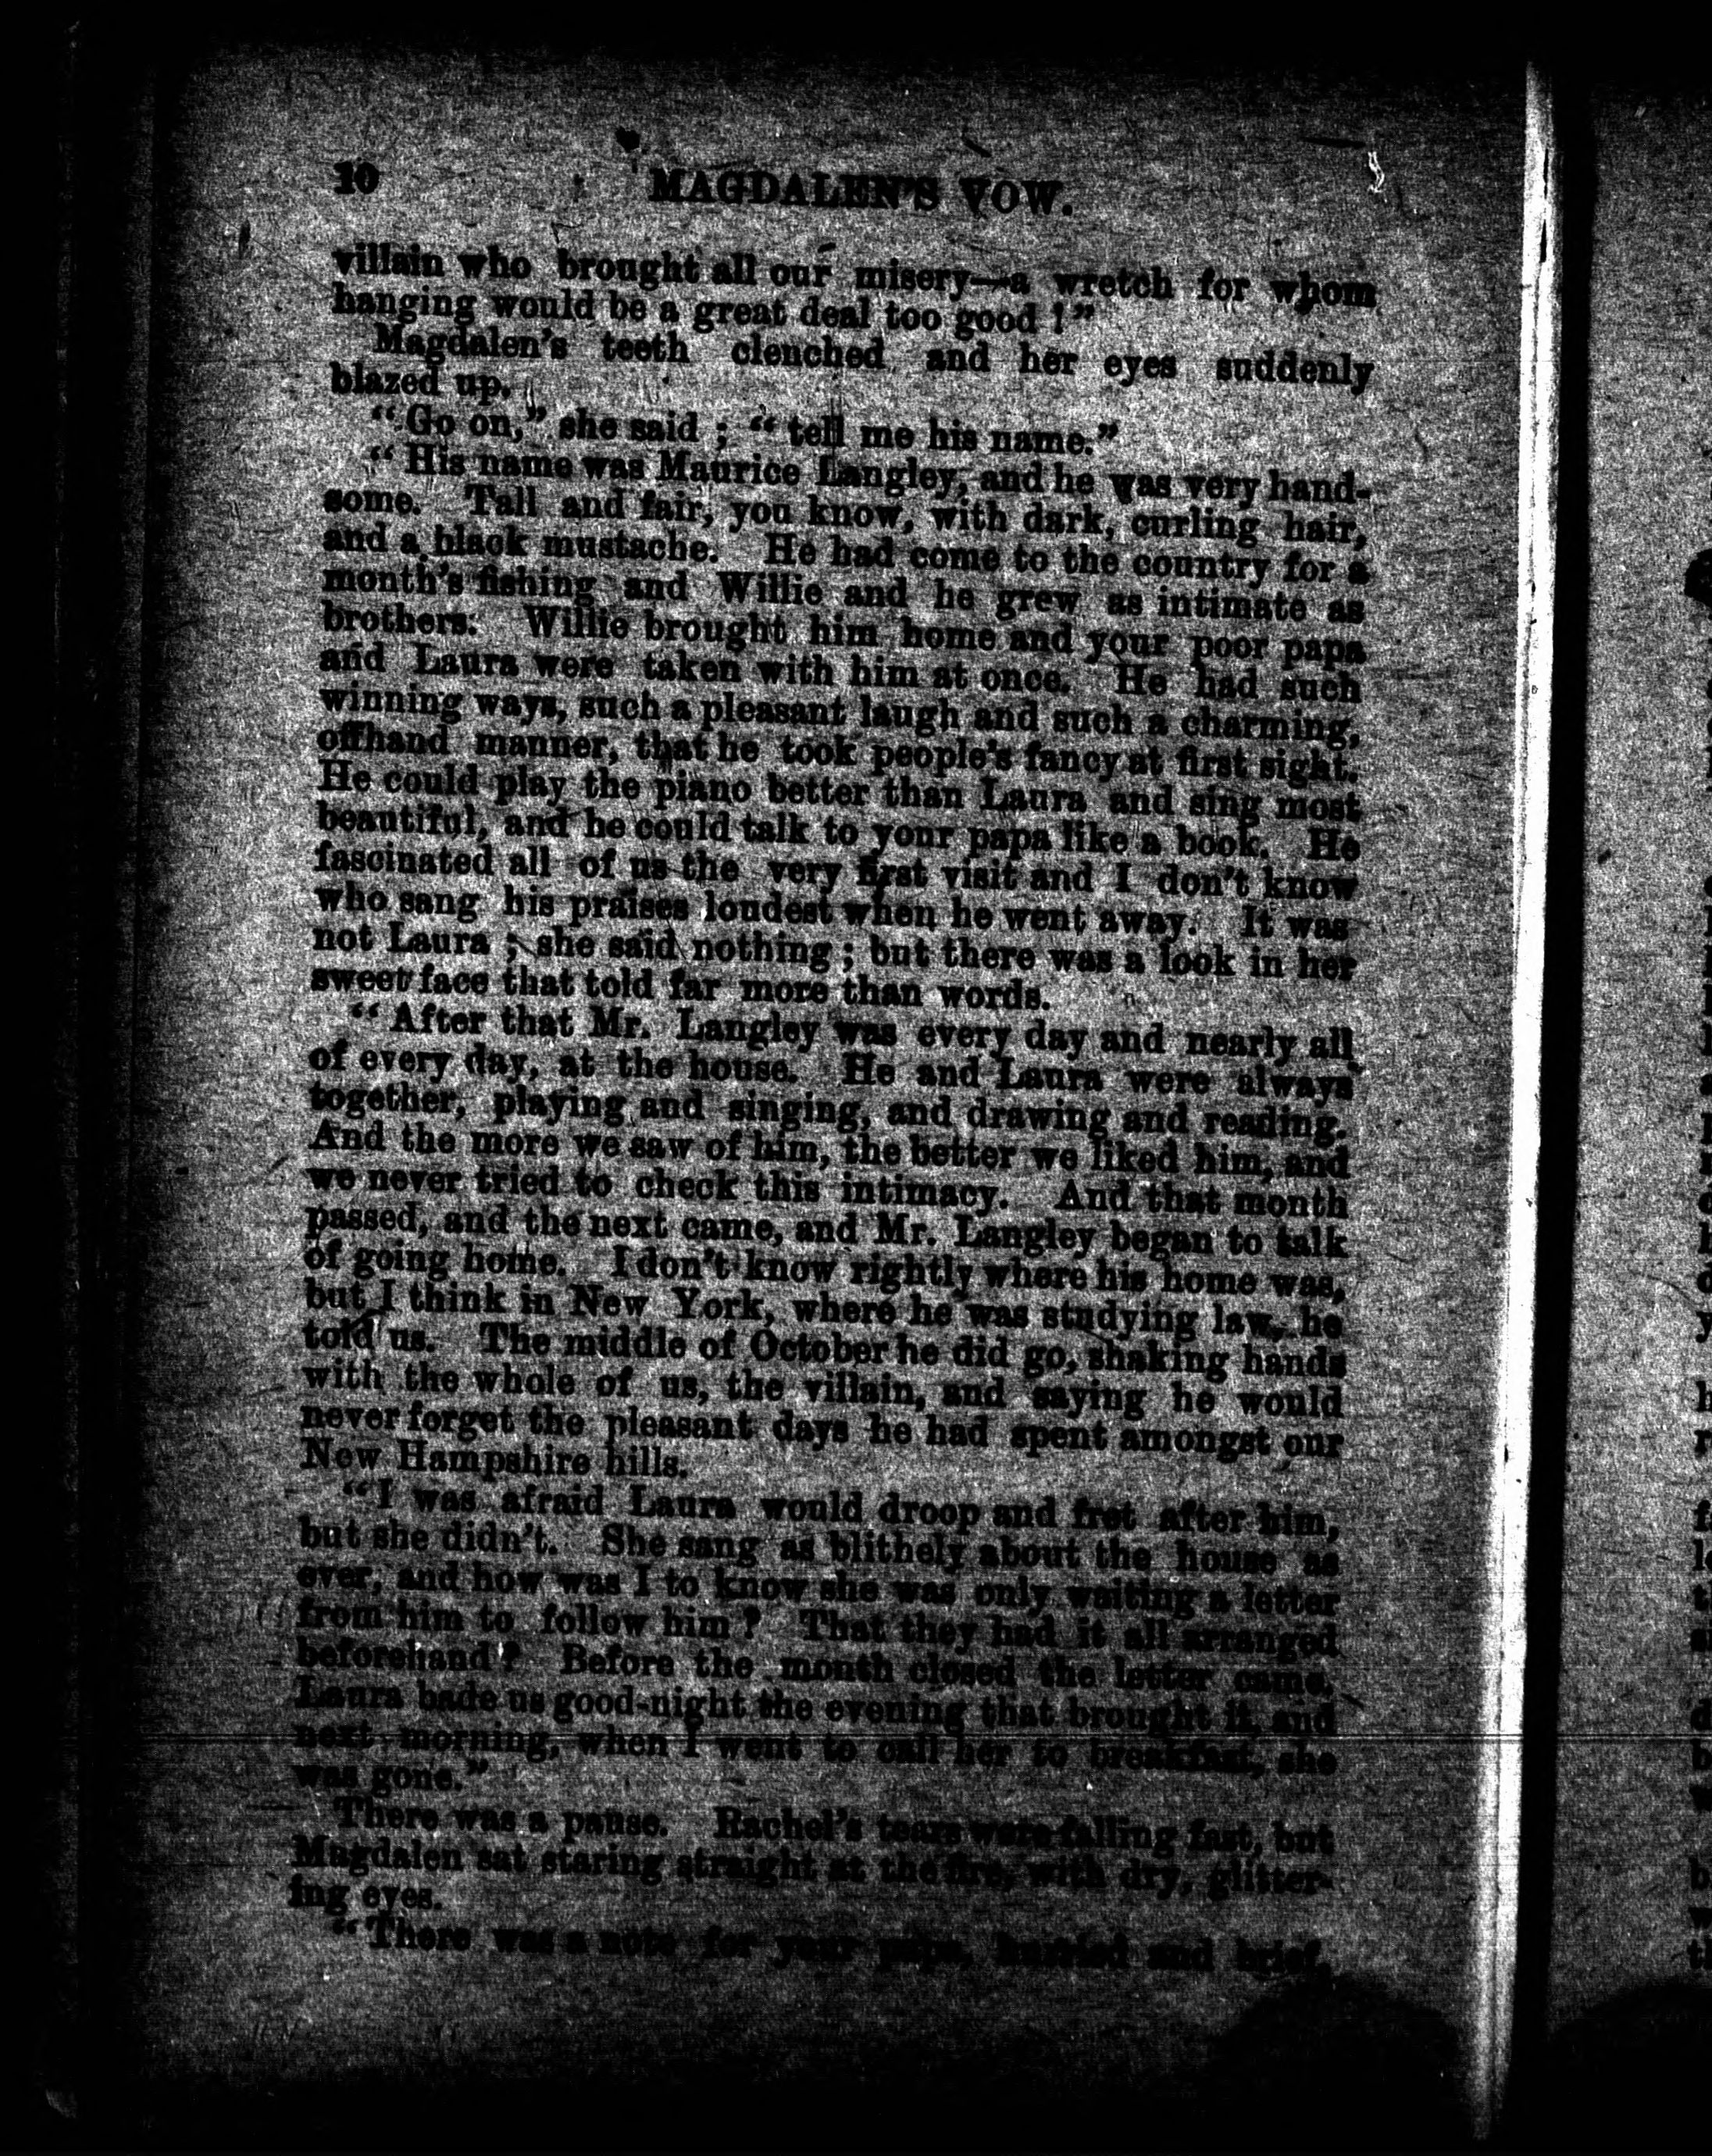 10 MAGDALEN'S VOW.
villain who brought all our misery—a wretch for whom
hanging would be a great deal too good !"
Magdalen's teeth clenched and her eyes suddenly
blazed up.
"Go on," she said ; "tell me his name."
"His name was Maurice Langley, and he was very hand-
some. Tall and fair, you know, with dark, curling hair,
and a black mustache. He had come to the country for a
month's fishing and Willie and he grew as intimate as
brothers. Willie brought him home and your poor papa
and Laura were taken with him at once. He had such
winning ways, such a pleasant laugh and such a charming,
offhand manner, that he took people's fancy at first sight.
He could play the piano better than Laura and sing most
beautiful, and he could talk to your papa like a book. He
fascinated all of us the very first visit and I don't know
who sang his praises loudest when he went away. It was
not Laura ; she said nothing ; but there was a look in her
sweet face that told far more than words.
"After that Mr. Langley was every day and nearly all
of every day, at the house. He and Laura were always
together, playing and singing, and drawing and reading.
And the more we saw of him, the better we liked him, and
we never tried to check this intimacy. And that month
passed, and the next came, and Mr. Langley began to talk
of going home. I don't know rightly where his home was,
but I think in New York, where he was studying law, he
told us. The middle of October he did go, shaking hands
with the whole of us, the villain, and saying he would
never forget the pleasant days he had spent amongst our
New Hampshire hills.
"I was afraid Laura would droop and fret after him,
but she didn't. She sang as blithely about the house as
ever, and how was I to know she was only waiting a letter
from him to follow him ? That they had it all arranged
beforehand ? Before the month closed the letter came.
Laura bade us good-night the evening that brought it, and
next morning, when I went to call her to breakfast, she
was gone."
There was a pause. Rachel's tears were falling fast, but
Magdalen sat staring straight at the fire, with dry, glitter-
ing eyes.
"There was a note for your papa, hurried and brief,